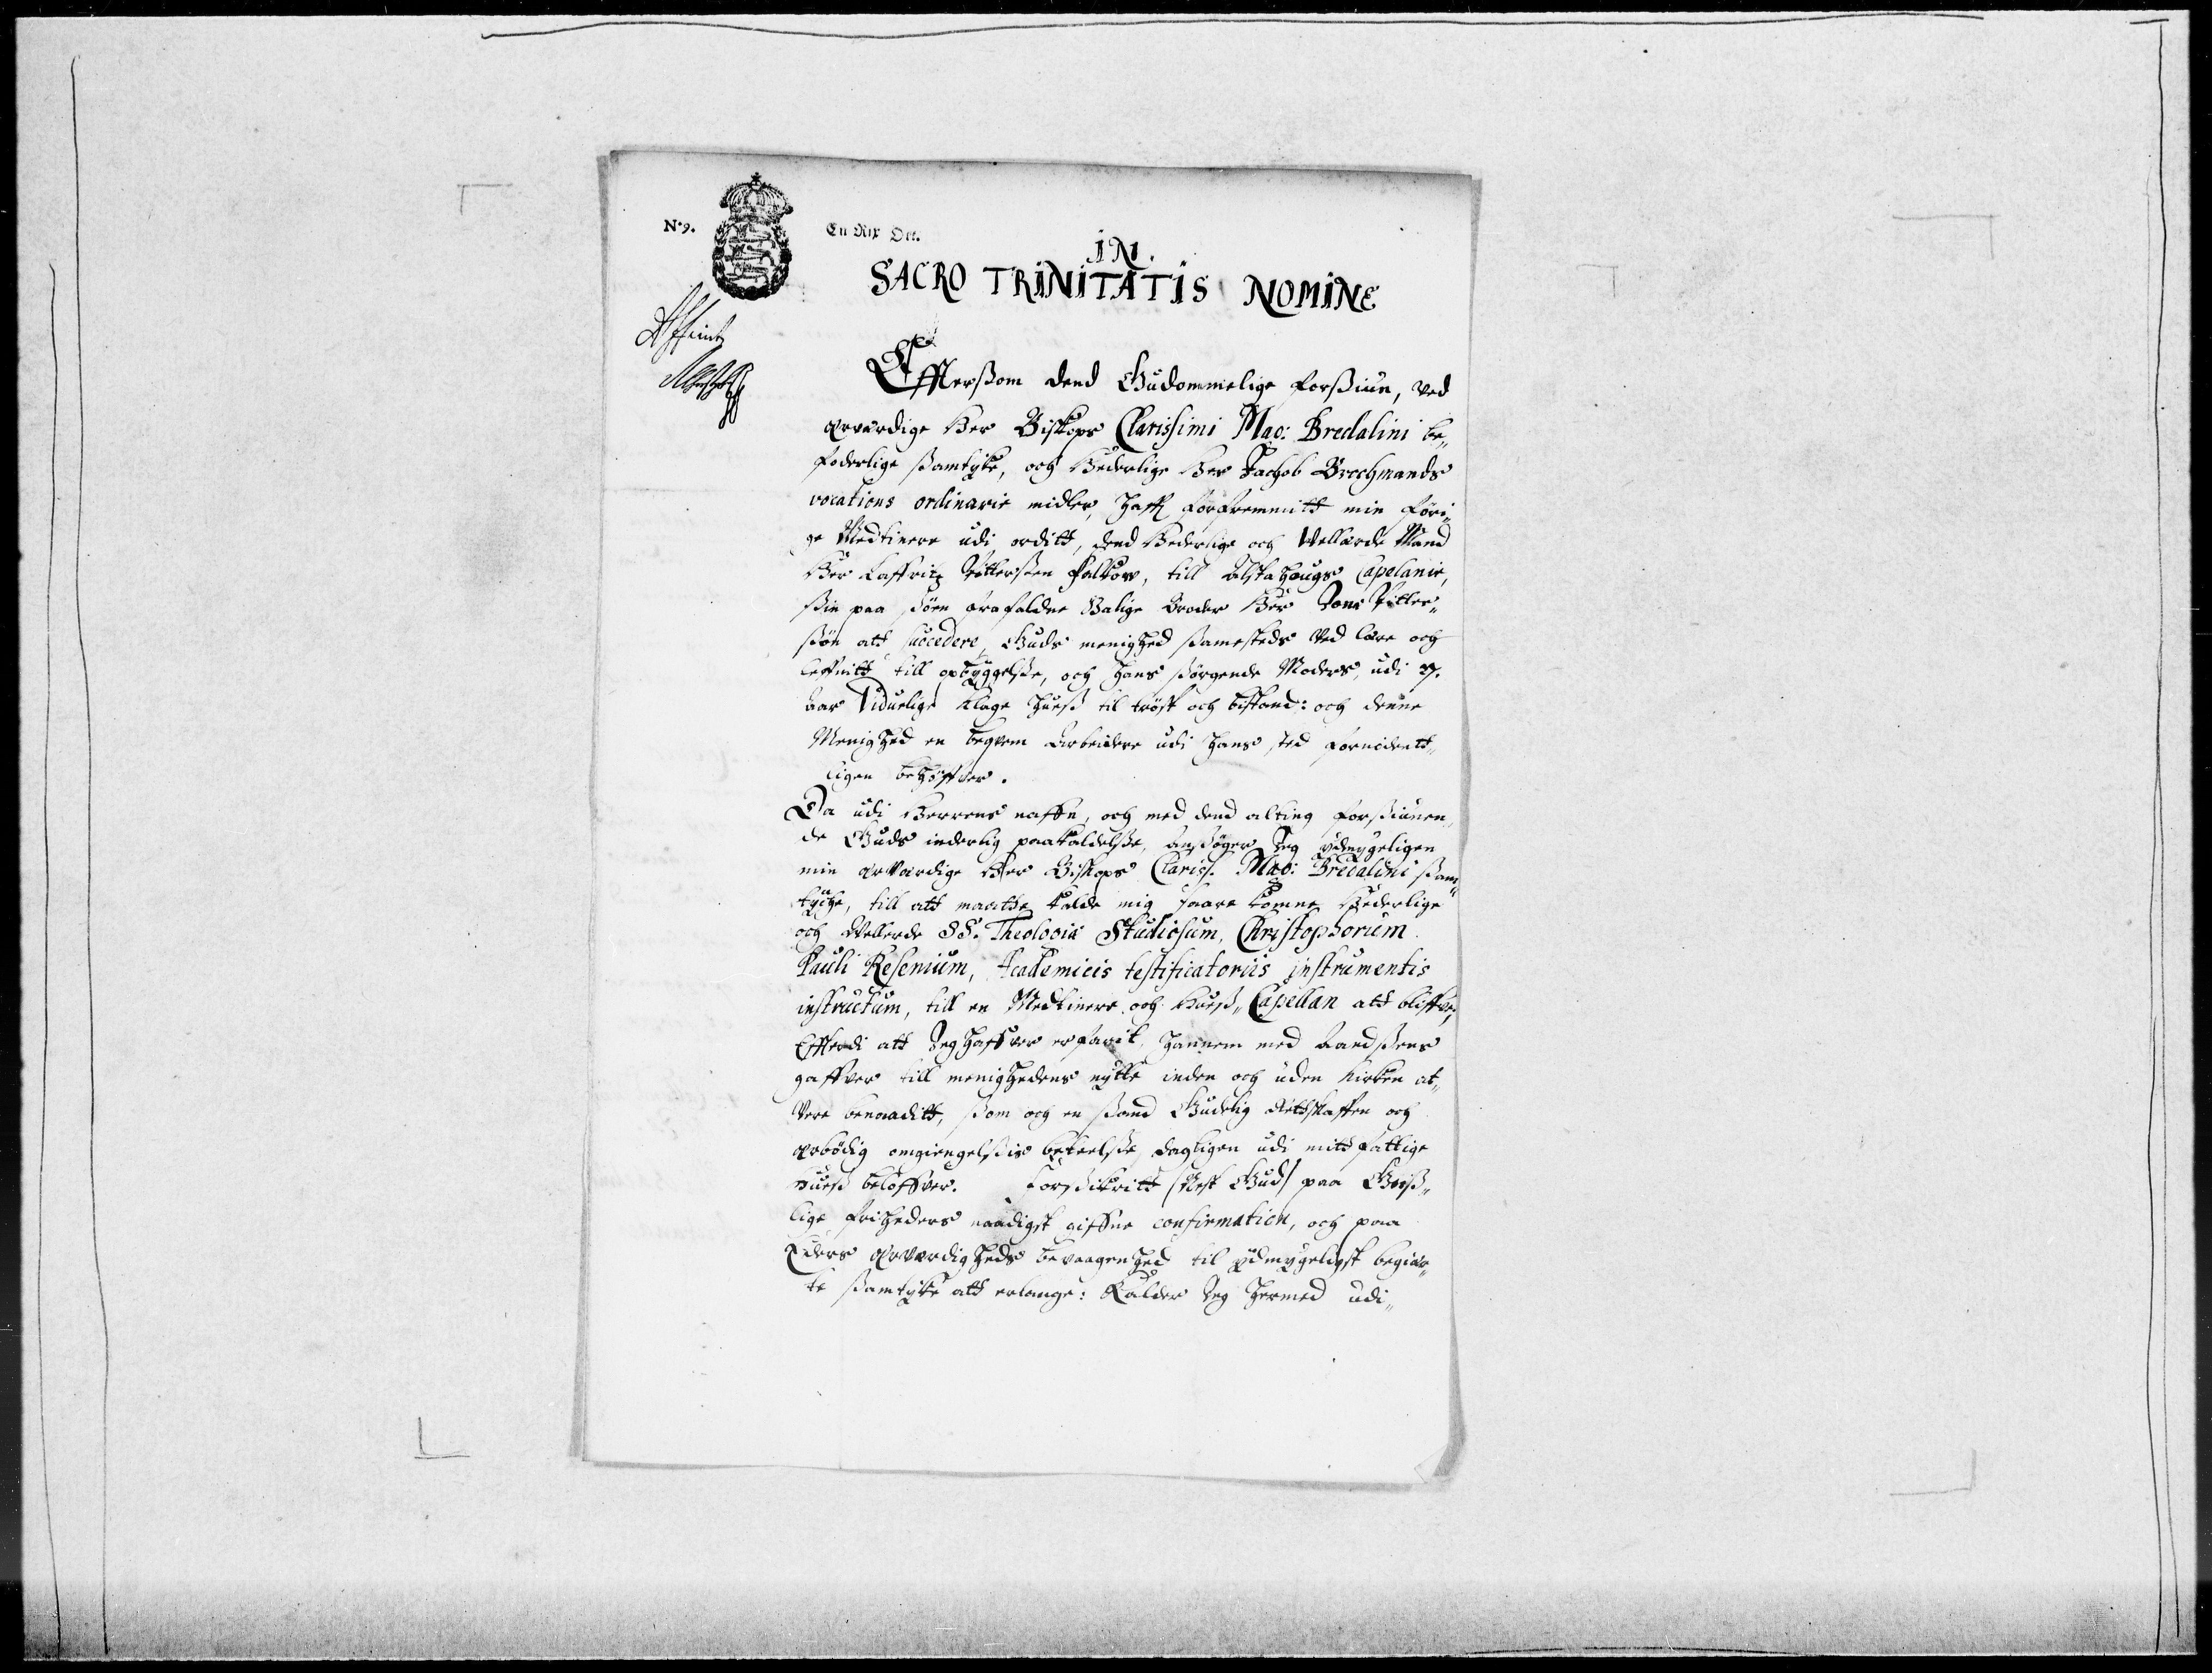 N° 9.
En Rix Ort.
IN.
SACRO TRINITATIS NOMINE
Effterßom dend Gudommelige forßiun, ved
ærværdige Her Biskops Clarissimi Mag: Bredalini be„
foderlige ßamtyke, och Hederlige Her Jachob Brochmands
vocations ordinarie midler, haffr forfremmitt min föri„
ge Medtienere udi orditt, dend Hederlige och Wellærde Mand
Her Laffritz Pitterßen Falkow, till Alstahougs Capelanie,
ßin paa söen frafaldne Salige Broder Her Jons Pitter„
ßön att succedere, Guds menighed ßamesteds ved lære och
leffnitt till opbyggelße, och hans ßörgende Moders, udi 7.
Aar Viduelige klage hueß til tröst och bistand: och denne
Menighed en beqvem Arbeidere udi hans sted fornödent„
ligen behöffver.
Da udi Herrens naffn, och med dend alting forßiunen„
de Guds inderlig paakaldelße, ansöger Jeg ydmygeligen
min ærværdige Her Biskops Clariss. Mag: Bredalini ßam„
tycke, till att maatte kalde mig saare komne Hederlige
och Wellerde SS. Theologiæ Studiosum, Christophorum
Pauli Resenium, Academicis testificatoriis instrumentis
instructum, till en Medtienere och Hueß„ Capellan att bliffve,
Efferdi att Jeg haffver erfarit, hannem med Aandßens
gaffver till menighedens nytte inden och uden Kirken at„
være benaaditt, ßom och en ßand Gudelig Retskaffen och
ærbödig omgiengelßis beteelße dagligen udi mitt fattige
Hueß beloffver. Forsikritt (Nest Gud) paa Geist„
lige friheders naadigst giffne confirmation, och paa
Eders Ærværdigheds bevaagenhed til ydmygeligst begier„
te ßamtyke att erlange: Kalder Jeg hermed udi„